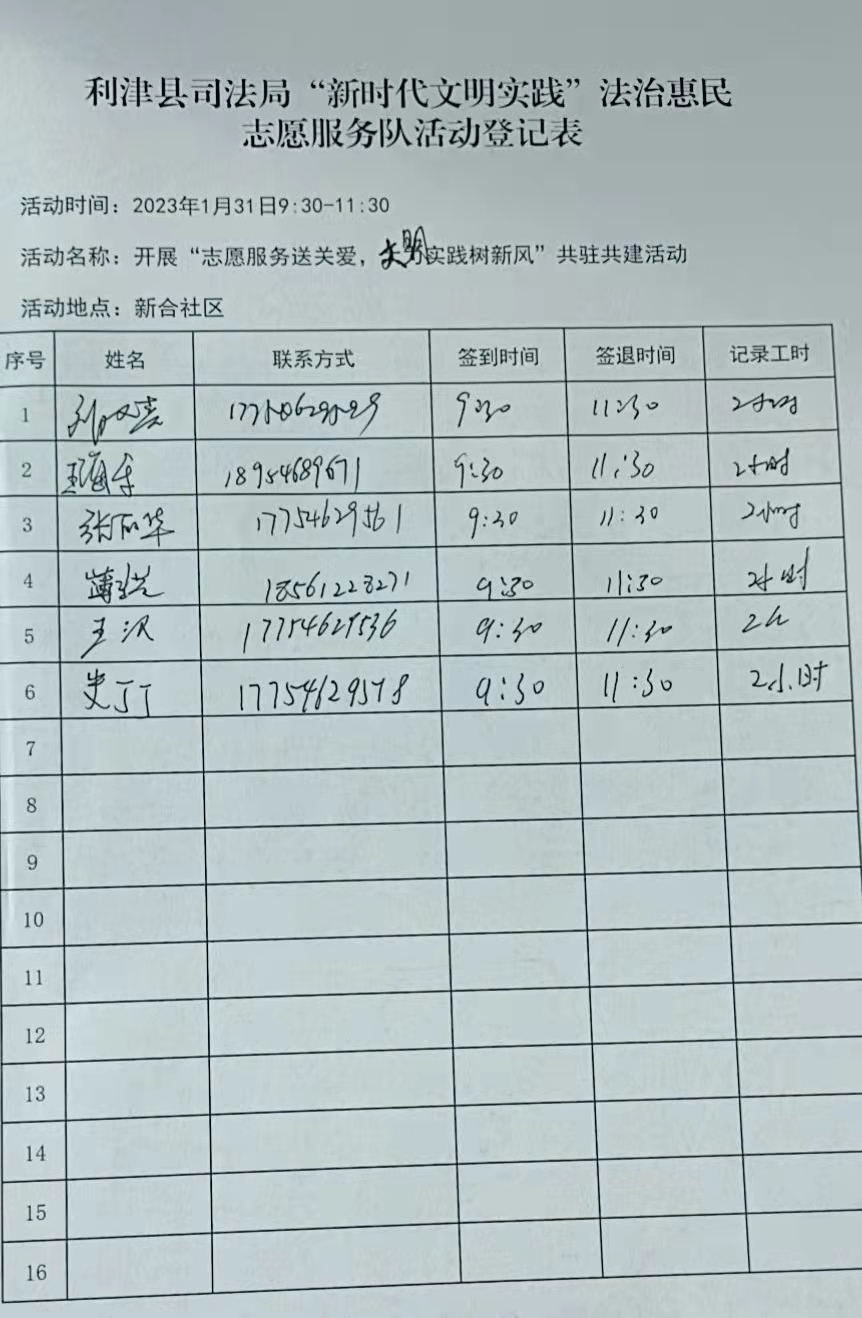 利津县司法局“新时代文明实践”法治惠民
志愿服务队活动登记表
活动时间：2023年1月31日9:30-11:30
活动名称：开展“志愿服务送关爱，文明实践树新风”共驻共建活动
活动地点：新合社区
序号 姓名 联系方式 签到时间 签退时间 记录工时
1 9:30 11:30 2小时
2 18954689671 9:30 11:30 2小时
3 张丽华 17754629561 9:30 11:30 2小时
4 18561228271 9:30 11:30 2小时
5 王汉 17754629536 9:30 11:30 2h
6 史丁丁 17754629578 9:30 11:30 2小时
7
8
9
10
11
12
13
14
15
16